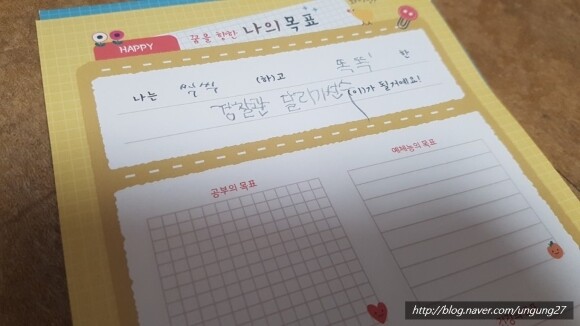 HAPPY 꿈을 향한 나의 목표
나는 씩씩 (하)고 똑똑! 한
경찰관 달리기선수 (이)가 될거에요!
공부의 목표 예체능의 목표
http://blog.naver.com/ungung27